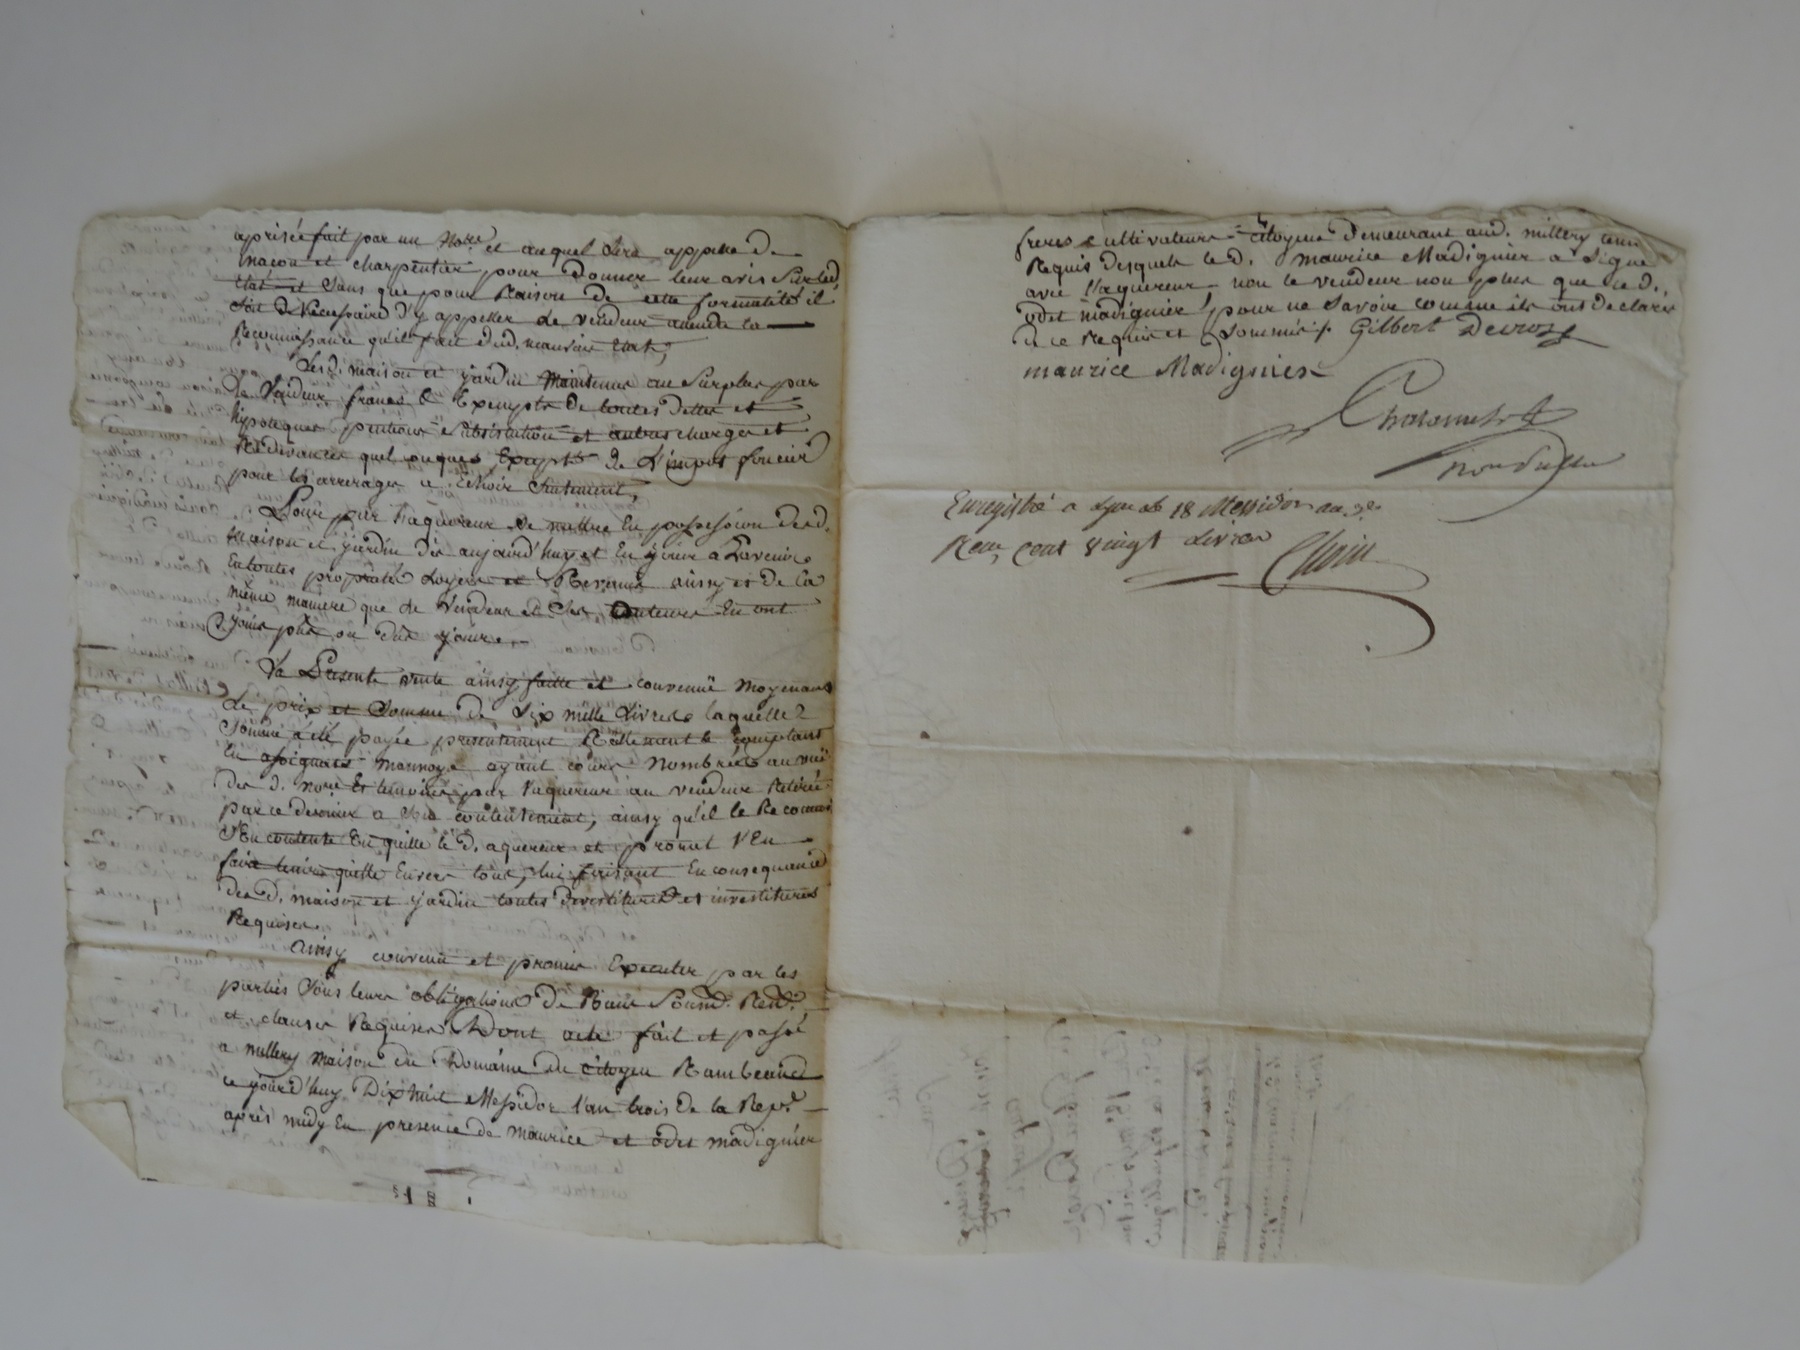 aprisée fait par un Notre et auquel sera appellé de
macon et charpentier pour donner leur avis sur led.
état et sans que pour Raison de cette formalité il
soit de Nécessaire d'y appeller le vendeur attendu la
Reconnaissance qu'il fait dud. mauvais état,
Lesd. maison et jardin maintenus au surplus par
le vendeur francs & Exempts de toutes dettes et
hypoteques pentions substitution et autres charges et
Redevances quelconques, Excepté de L'impot foncier
pour les arrerages a Echoir seulement,
Pour par l'aquereur se mettre En possession desd.
maison et jardin dès aujourd'huy et En jouir à L'avenir
En toutes propriété Loyers et Revenus ainsy et de la
même maniere que le vendeur et ses auteurs En ont
jouis pû ou dû jouir.
La Presente vente ainsy faitte et convenuë moyenant
Le prix et somme de six mille Livres laquelle
somme a été payée presentement Réellement & comptant
En assignats monnoye ayant cours nombrés au vuë
des d. nore et temoins par l'aquereur au vendeur Retirée
par ce dernier a son contentement, ainsy qu'il le Reconnoit
s'En contente En quitte le d. aquereur et promet l'En
faire tenir quitte Envers tous, lui faisant En consequence
des d. maison et jardin toutes devestitures et investitures
Requises.
Ainsy convenu et promis Executer par les
parties sous leurs obligations de Biens Soumd. Rend.
et clauses Requises Dont acte fait et passé
a millery maison du Domaine du citoyen Rambeaud
ce jourd'huy Dix huit Messidor l'an trois de la Repe.
après midy En presence de maurice et odet madignier
freres cultivateurs citoyens demeurant aud. millery temn
Requis desquels le d. Maurice Madignier a signé
avec l'aquereur non le vendeur non plus que led.
odet madignier pour ne savoir comme ils ont déclaré
de ce Requis et sommés /. Gilbert Devro
maurice Madignier
Enregistré a Lyon le 18 Messidor an 3e
Recu cent vingt Livres